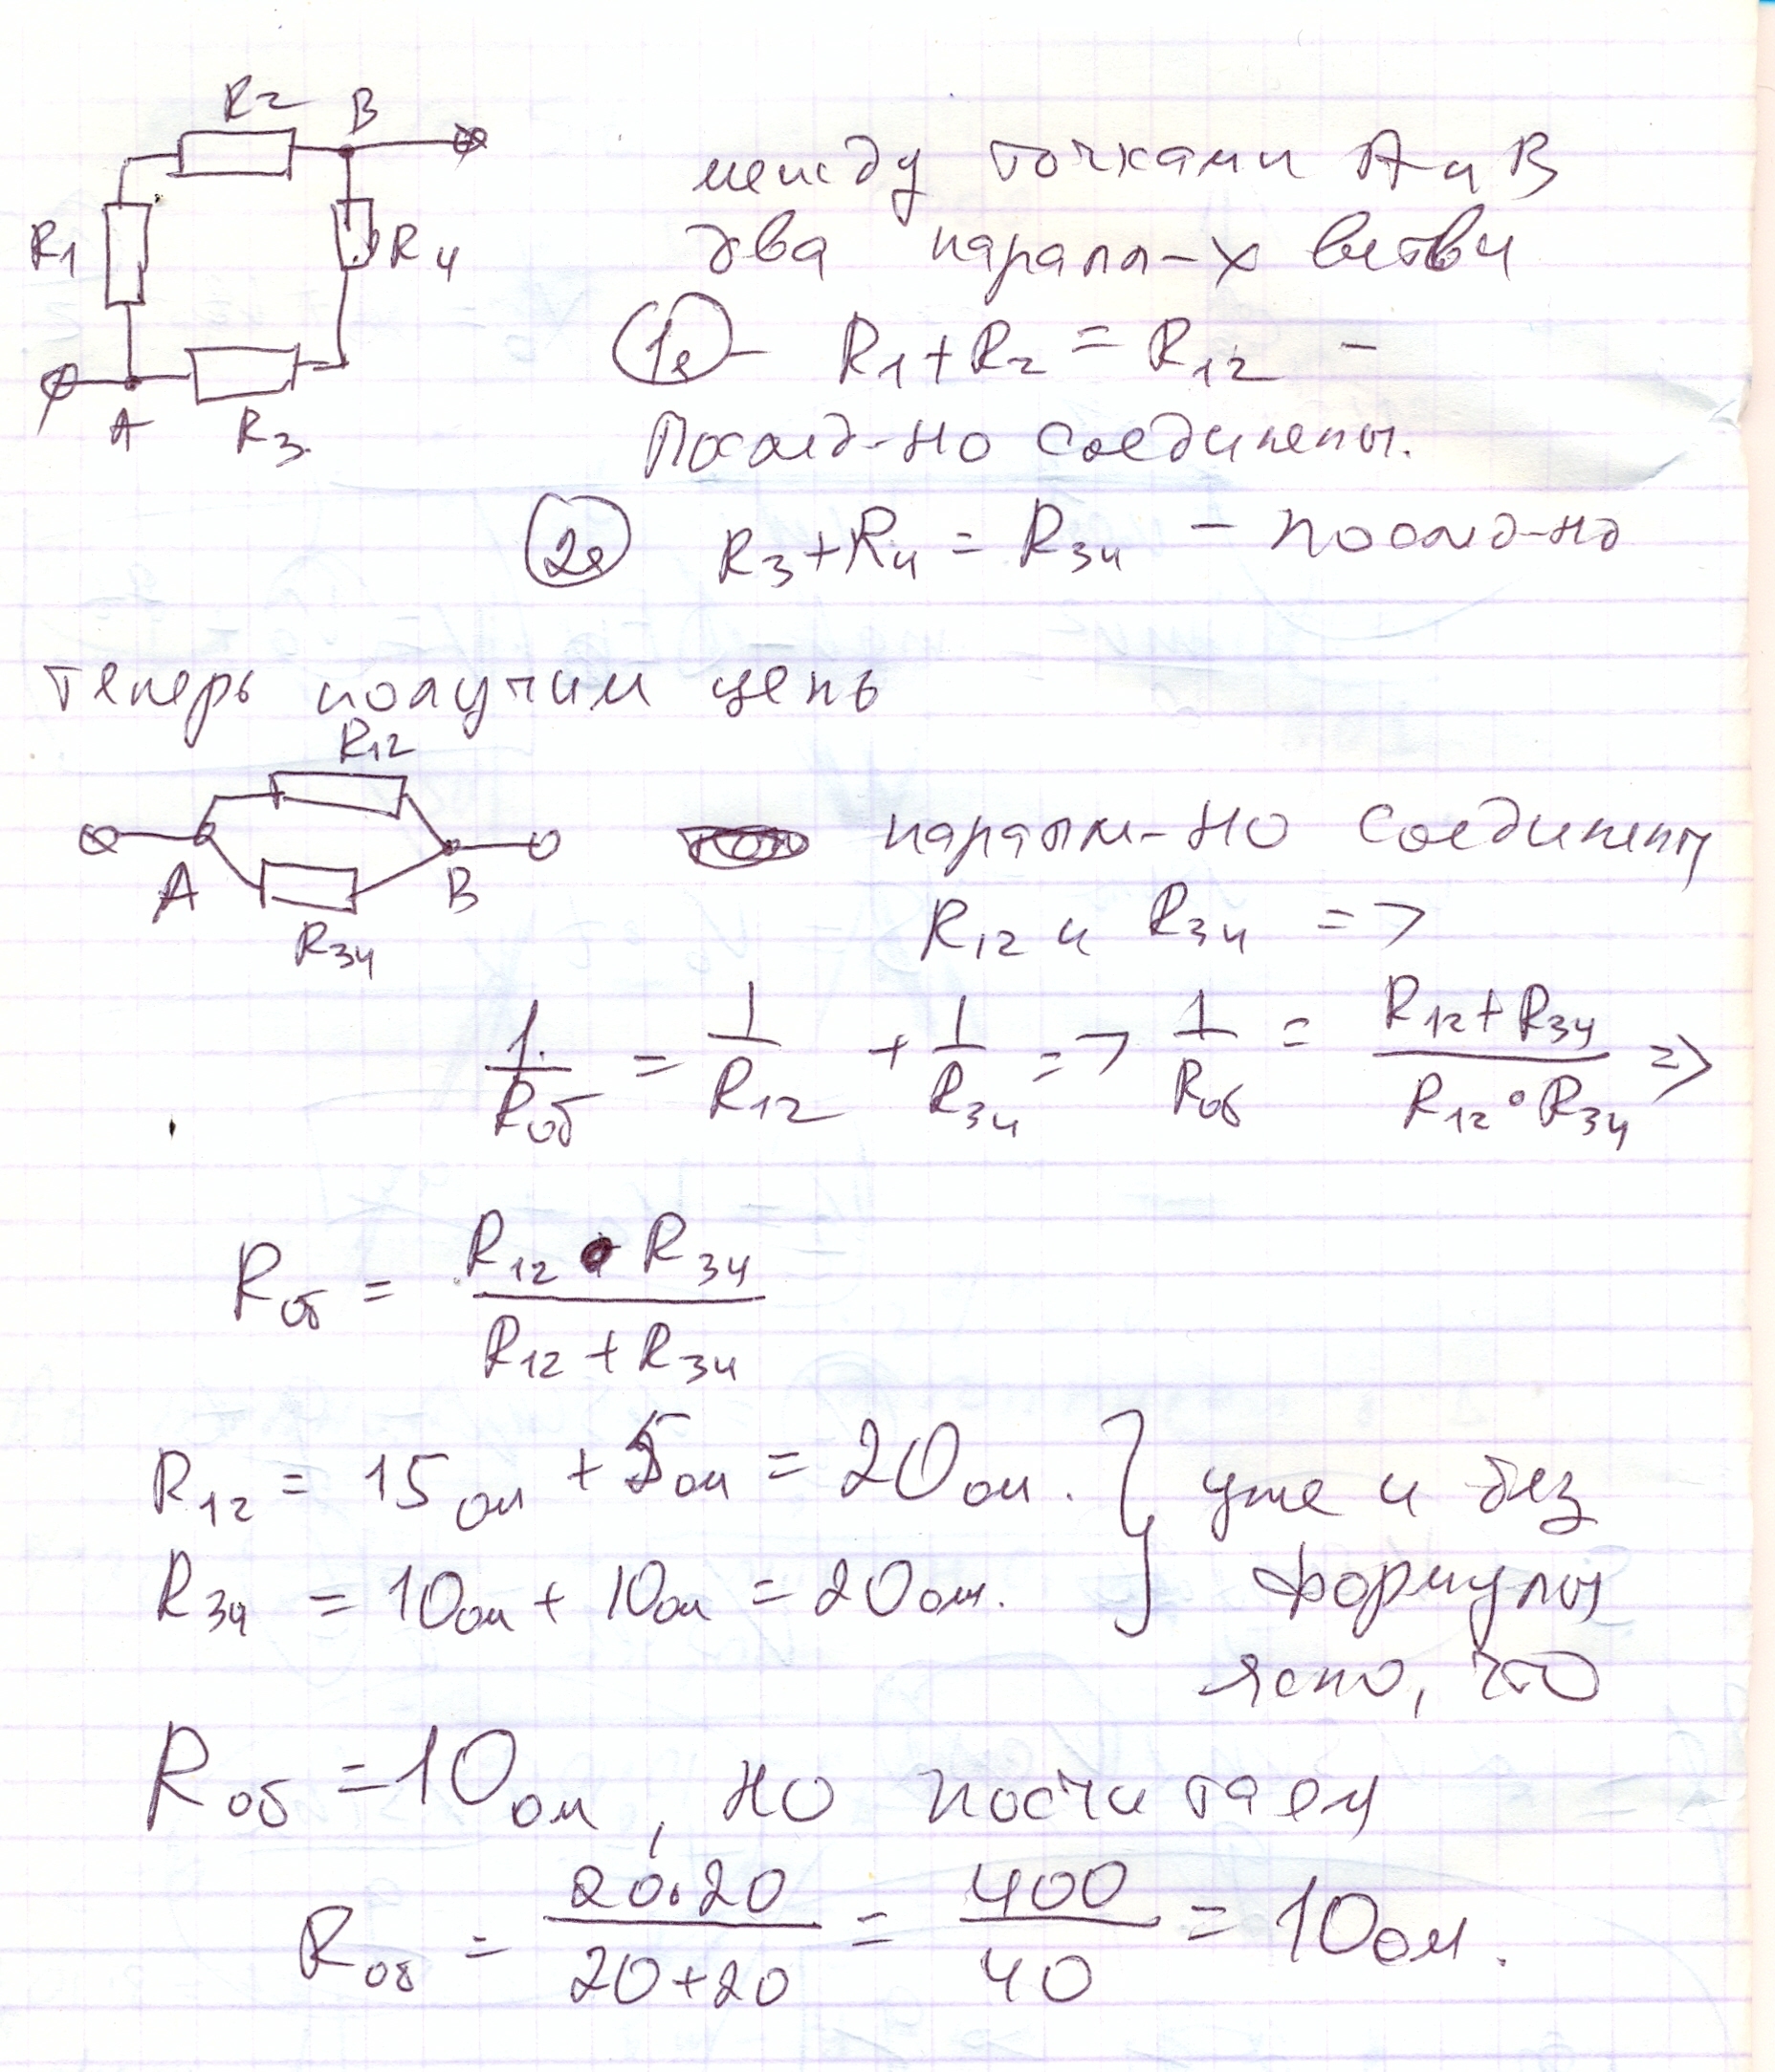 R2 B
R1 R4
A R3
между точками A и B
два паралл-х ветви
1я - R1+R2 = R12 -
Послед-но соединены.
2я R3+R4 = R34 - послед-но
теперь получим цепь
R12
A B
R34
паралл-но соединены
R12 и R34 =>
1/Rоб = 1/R12 + 1/R34 => 1/Rоб = (R12+R34)/(R12·R34) =>
Rоб = (R12 · R34)/(R12+R34)
R12 = 15ом + 5ом = 20ом. } уже и без
R34 = 10ом + 10ом = 20ом. формулы
ясно, что
Rоб = 10ом, но посчитаем
Rоб = (20·20)/(20+20) = 400/40 = 10ом.